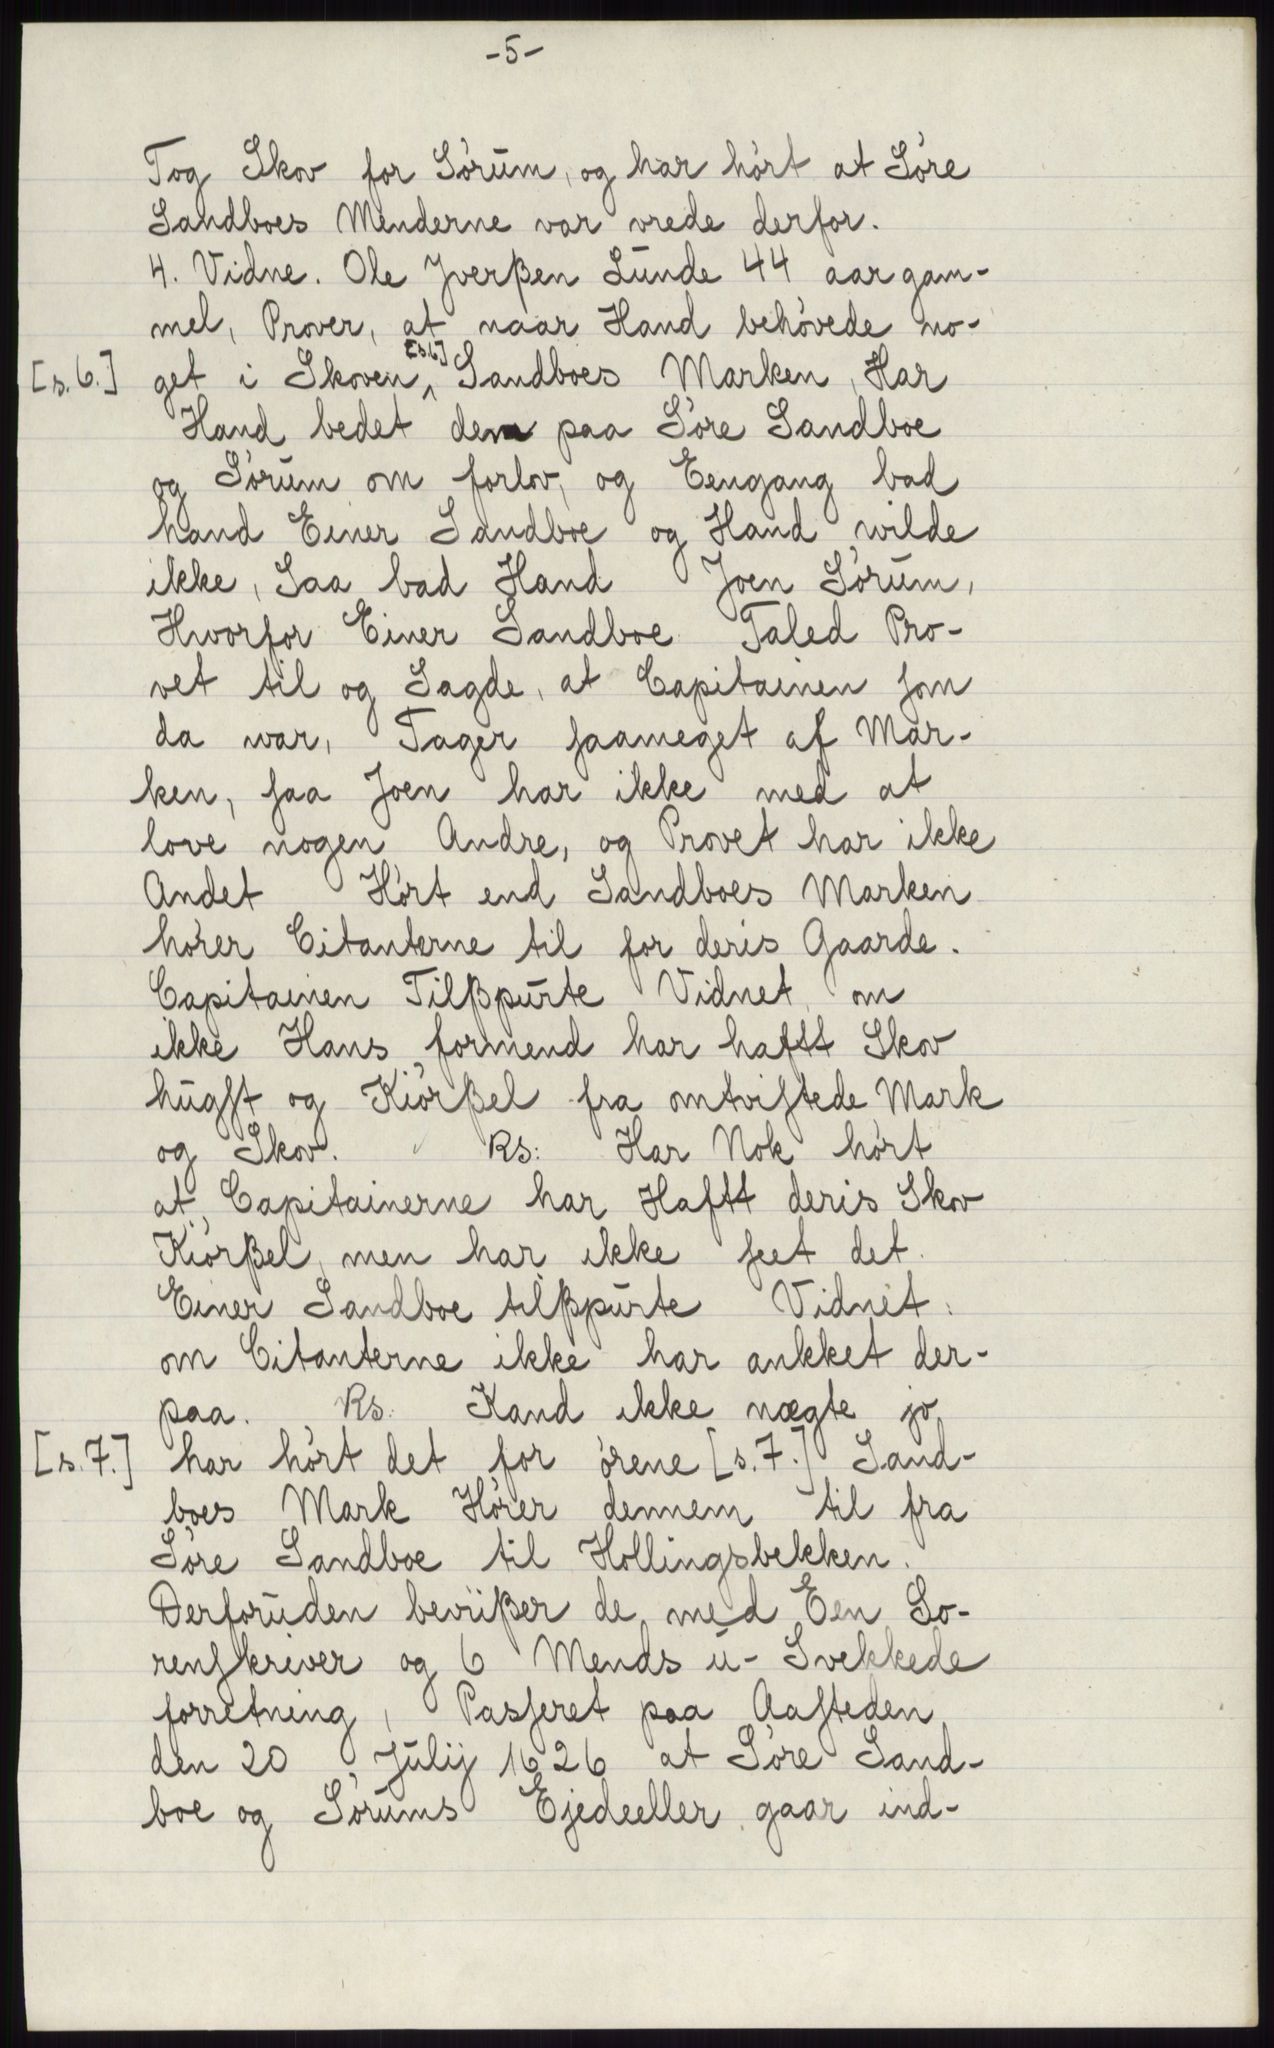 -5-
Tog Skov for Sórŭm, og har hórt at Sóre
Sandboes Menderne var vrede derfor.
4. Vidne. Ole Jverßen Lŭnde 44 aar gam-
mel, Prover, at naar Hand behóvede no-
[s. 6.] get i Skoven, [s.6] Sandboes Marken, Har
Hand bedet dem paa Sóre Sandboe
og Sórŭm om forlov, og Eengang bad
hand Einer Sandboe og Hand wilde
ikke, Saa bad Hand Joen Sórŭm,
Hvorfor Einer Sandboe Taled Pro-
vet til og Sagde, at Capitainen som
da war, Tager saameget af Mar-
ken, saa Joen har ikke med at
love nogen Andre, og Provet har ikke
Andet Hórt end Sandboes Marken
hórer Citanterne til for deris Gaarde.
Capitainen Tilßpŭrte Vidnet, om
ikke Hans formend har haftt Skov
hŭgst og Kiórßel fra omtvistede Mark
og Skov. Rs: Har Nok hórt
at Capitainerne har Haftt deris Skov
Kiórßel, men har ikke seet det.
Einer Sandboe tilßpŭrte Vidnet:
om Citanterne ikke har ankket der-
paa. Rs: Kand ikke nægte jo
[s. 7.] har hórt det for órene [s. 7.] Sand-
boes Mark Hórer dennem til fra
Sóre Sandboe til Hollingsbekken.
Derforŭden bevüßer de med Een So-
renskriver og 6 Mends ŭ- Svekkede
forretning, Passeret paa Aasteden
den 20 Jŭlij 1626 at Sóre Sand-
boe og Sórŭms Ejedeeller gaar ind-